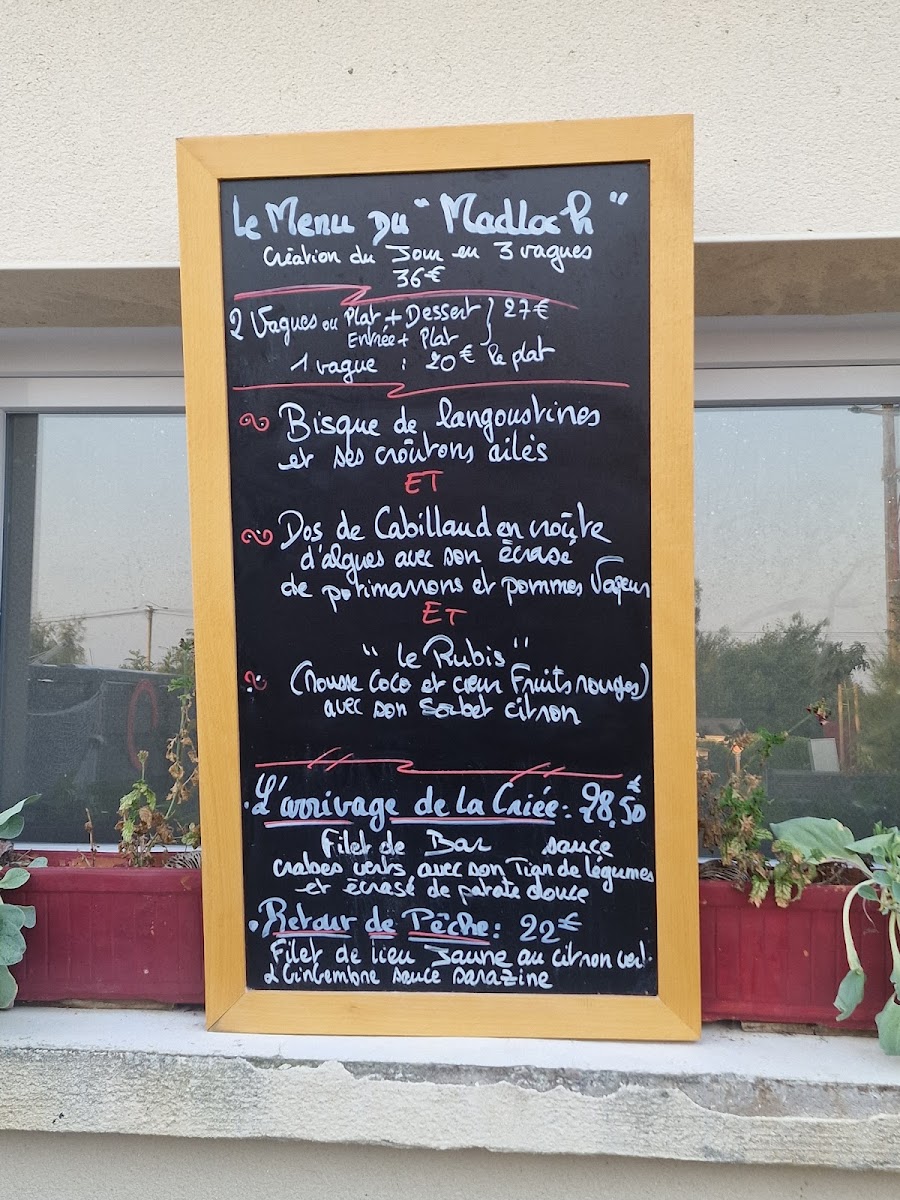 Le Menu Du "Madloc'h"
Création du Jour en 3 vagues
36€
2 Vagues ou Plat + Dessert } 27€
Entrée + Plat
1 vague : 20€ le plat
Bisque de langoustines
et ses croûtons ailés
ET
Dos de Cabillaud en croûte
d'algues avec son Écrasé
de potimarrons et pommes Vapeur
ET
"Le Rubis"
(Mousse Coco et cœur Fruits rouges)
avec son Sorbet citron
L'arrivage de la Criée : 28,50€
Filet de Bar sauce
crabes verts, avec son Tian de légumes
et écrasé de patate douce
Retour de Pêche : 22€
Filet de lieu Jaune au citron vert
& Gingembre sauce sarazine